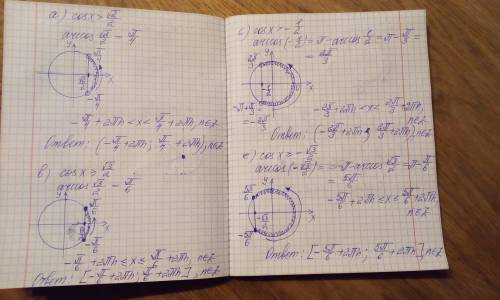 а) cos x > √2/2
arccos √2/2 = π/4
y
π/4
x
√2/2
-π/4
-π/4 + 2πn < x < π/4 + 2πn, n∈Z
Ответ: (-π/4 + 2πn; π/4 + 2πn), n∈Z
в) cos x ≥ √3/2
arccos √3/2 = π/6
y
π/6
x
√3/2
-π/6
-π/6 + 2πn ≤ x ≤ π/6 + 2πn, n∈Z
Ответ: [-π/6 + 2πn; π/6 + 2πn], n∈Z
с) cos x > -1/2
arccos(-1/2) = π - arccos 1/2 = π - π/3 =
= 2π/3
2π/3
y
x
-1/2
-π + π/3 =
= -2π/3
-2π/3 + 2πn < x < 2π/3 + 2πn,
n∈Z
Ответ: (-2π/3 + 2πn; 2π/3 + 2πn), n∈Z
е) cos x ≥ -√3/2
arccos(-√3/2) = π - arccos √3/2 = π - π/6
= 5π/6
5π/6
y
x
-√3/2
-5π/6
-5π/6 + 2πn ≤ x ≤ 5π/6 + 2πn,
n∈Z
Ответ: [-5π/6 + 2πn; 5π/6 + 2πn], n∈Z